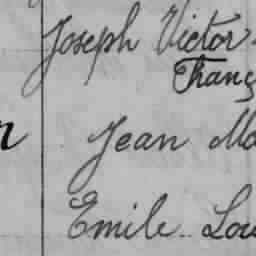 Joseph Victor
Franç
Jean Ma
Emile Lou